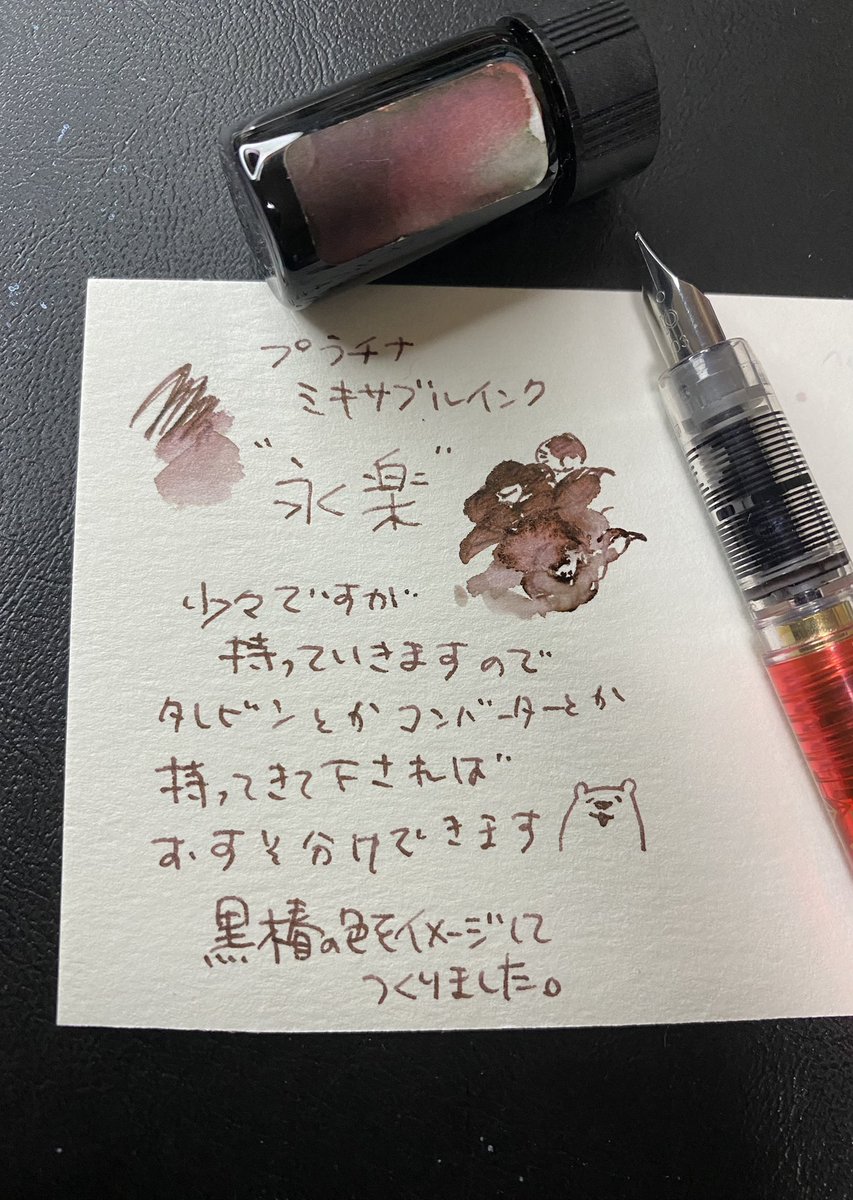 プラチナ
ミキサブルインク
"永く楽"
少々ですが
持っていきますので
タレビンとかコンバーターとか
持ってきて下されば
おすそ分けできます
黒椿の色をイメージして
つくりました。